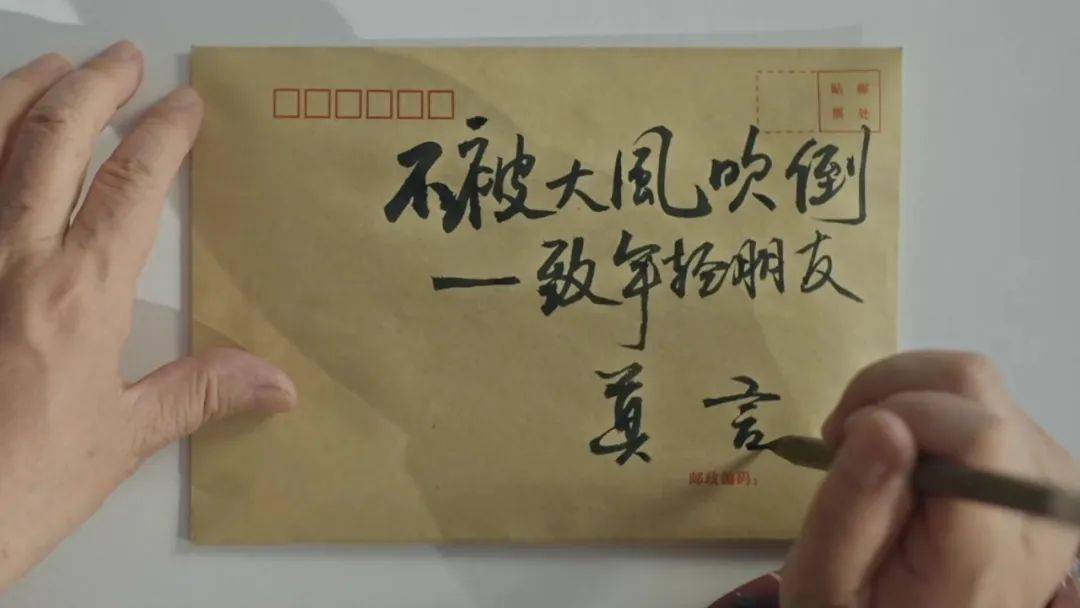 贴 邮
票 处
不被大風吹倒
—致年轻朋友
莫 言
邮政编码：